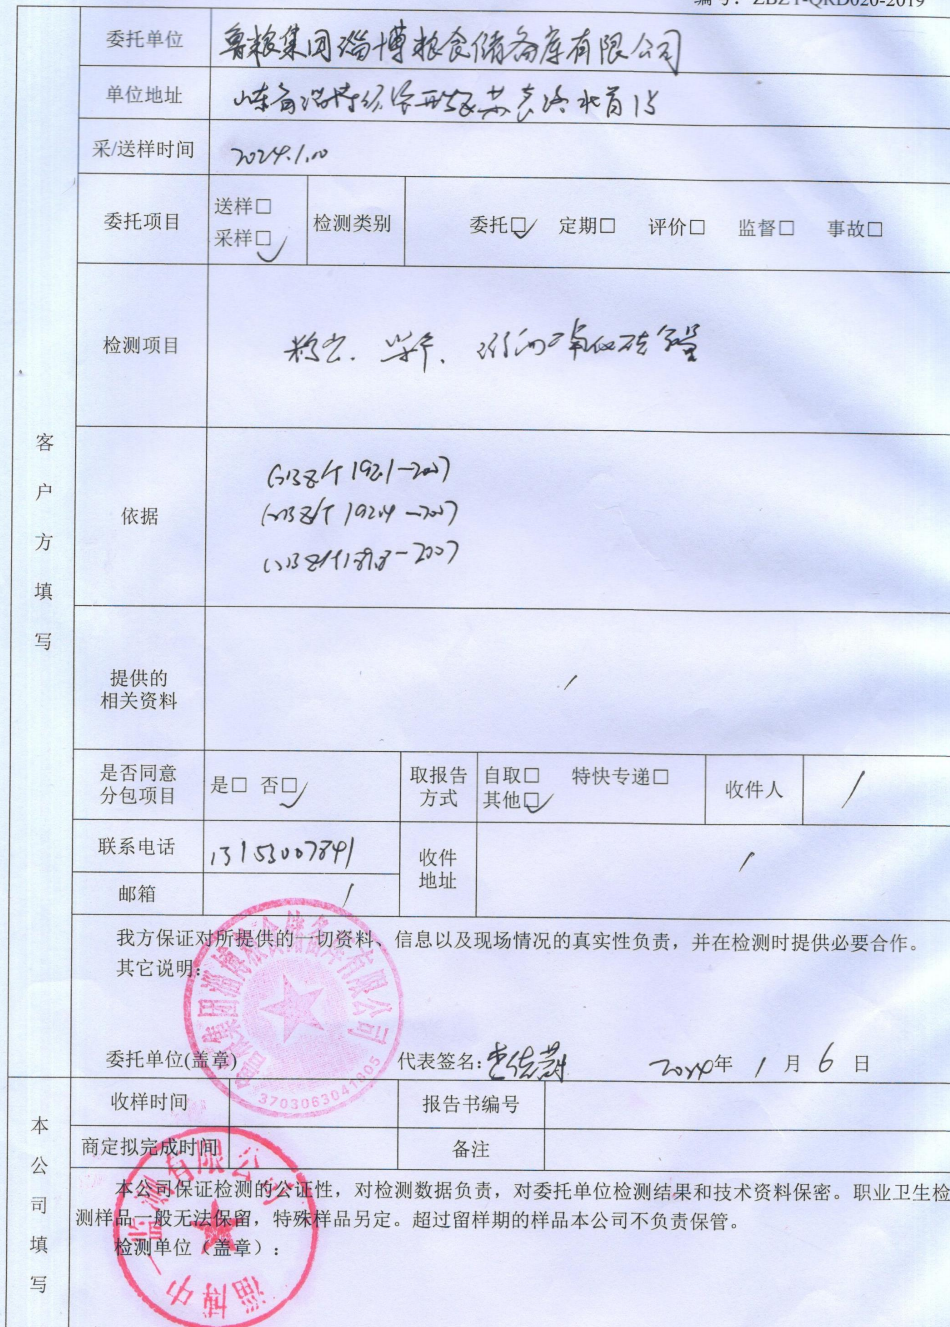 编号：ZBZY-QRD020-2019
委托单位 鲁粮集团淄博粮食储备库有限公司
单位地址 山东省淄博
采/送样时间 2024.1.10
委托项目 送样□ 采样□✓ 检测类别 委托□✓ 定期□ 评价□ 监督□ 事故□
检测项目 粉尘、噪声、
客户方填写
依据 GBZ/T 192.1-2007
GBZ/T 192.4-2007
GBZ/T 189.8-2007
提供的相关资料 /
是否同意分包项目 是□ 否□✓ 取报告方式 自取□ 特快专递□ 其他□✓ 收件人 /
联系电话 13153007841 收件地址 /
邮箱 /
我方保证对所提供的一切资料、信息以及现场情况的真实性负责，并在检测时提供必要合作。
其它说明：
集团淄博粮食储备库有限公司
3703063041805
委托单位(盖章) 代表签名: 2024年 1 月 6 日
收样时间 报告书编号
商定拟完成时间 备注
本公司填写
本公司保证检测的公证性，对检测数据负责，对委托单位检测结果和技术资料保密。职业卫生检
测样品一般无法保留，特殊样品另定。超过留样期的样品本公司不负责保管。
检测单位（盖章）：
淄博中一监测有限公司